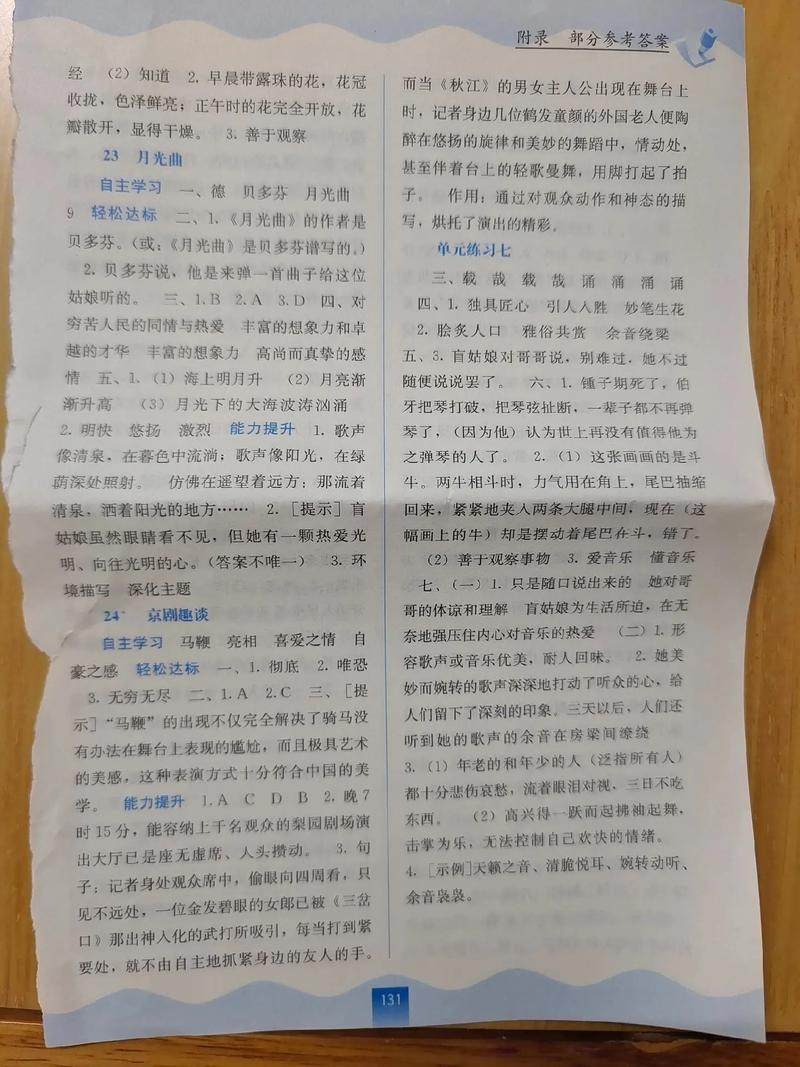 附录 部分参考答案
经 (2)知道 2.早晨带露珠的花，花冠
收拢，色泽鲜亮；正午时的花完全开放，花
瓣散开，显得干燥。 3.善于观察
23 月光曲
自主学习 一、德 贝多芬 月光曲
9 轻松达标 二、1.《月光曲》的作者是
贝多芬。(或：《月光曲》是贝多芬谱写的。)
2.贝多芬说，他是来弹一首曲子给这位
姑娘听的。 三、1.B 2.A 3.D 四、对
穷苦人民的同情与热爱 丰富的想象力和卓
越的才华 丰富的想象力 高尚而真挚的感
情 五、1.(1)海上明月升 (2)月亮渐
渐升高 (3)月光下的大海波涛汹涌
2.明快 悠扬 激烈 能力提升 1.歌声
像清泉，在暮色中流淌；歌声像阳光，在绿
荫深处照射。 仿佛在遥望着远方；那流着
清泉，洒着阳光的地方…… 2.［提示］盲
姑娘虽然眼睛看不见，但她有一颗热爱光
明、向往光明的心。(答案不唯一) 3.环
境描写 深化主题
24* 京剧趣谈
自主学习 马鞭 亮相 喜爱之情 自
豪之感 轻松达标 一、1.彻底 2.唯恐
3.无穷无尽 二、1.A 2.C 三、［提
示］“马鞭”的出现不仅完全解决了骑马没
有办法在舞台上表现的尴尬，而且极具艺术
的美感，这种表演方式十分符合中国的美
学。 能力提升 1.A C D B 2.晚7
时15分，能容纳上千名观众的梨园剧场演
出大厅已是座无虚席、人头攒动。 3.句
子：记者身处观众席中，偷眼向四周看，只
见不远处，一位金发碧眼的女郎已被《三岔
口》那出神入化的武打所吸引，每当打到紧
要处，就不由自主地抓紧身边的友人的手。
而当《秋江》的男女主人公出现在舞台上
时，记者身边几位鹤发童颜的外国老人便陶
醉在悠扬的旋律和美妙的舞蹈中，情动处，
甚至伴着台上的轻歌曼舞，用脚打起了拍
子。 作用：通过对观众动作和神态的描
写，烘托了演出的精彩。
单元练习七
三、载 哉 载 哉 诵 涌 涌 诵
四、1.独具匠心 引人入胜 妙笔生花
2.脍炙人口 雅俗共赏 余音绕梁
五、3.盲姑娘对哥哥说，别难过，她不过
随便说说罢了。 六、1.锺子期死了，伯
牙把琴打破，把琴弦扯断，一辈子都不再弹
琴了，(因为他)认为世上再没有值得他为
之弹琴的人了。 2.(1)这张画画的是斗
牛。两牛相斗时，力气用在角上，尾巴抽缩
回来，紧紧地夹入两条大腿中间，现在(这
幅画上的牛)却是摆动着尾巴在斗，错了。
(2)善于观察事物 3.爱音乐 懂音乐
七、(一)1.只是随口说出来的 她对哥
哥的体谅和理解 盲姑娘为生活所迫，在无
奈地强压住内心对音乐的热爱 (二)1.形
容歌声或音乐优美，耐人回味。 2.她美
妙而婉转的歌声深深地打动了听众的心，给
人们留下了深刻的印象。三天以后，人们还
听到她的歌声的余音在房梁间缭绕
3.(1)年老的和年少的人(泛指所有人)
都十分悲伤哀愁，流着眼泪对视，三日不吃
东西。 (2)高兴得一跃而起拂袖起舞，
击掌为乐，无法控制自己欢快的情绪。
4.［示例］天籁之音、清脆悦耳、婉转动听、
余音袅袅。
131